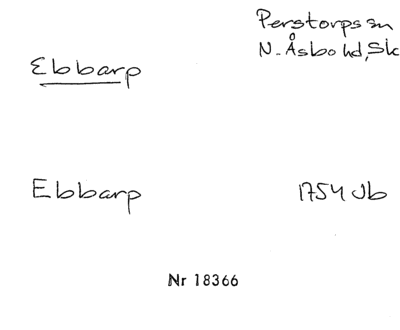 Perstorps sn
N. Åsbo hd, Sk
Ebbarp
Ebbarp 1754 Jb
Nr 18366